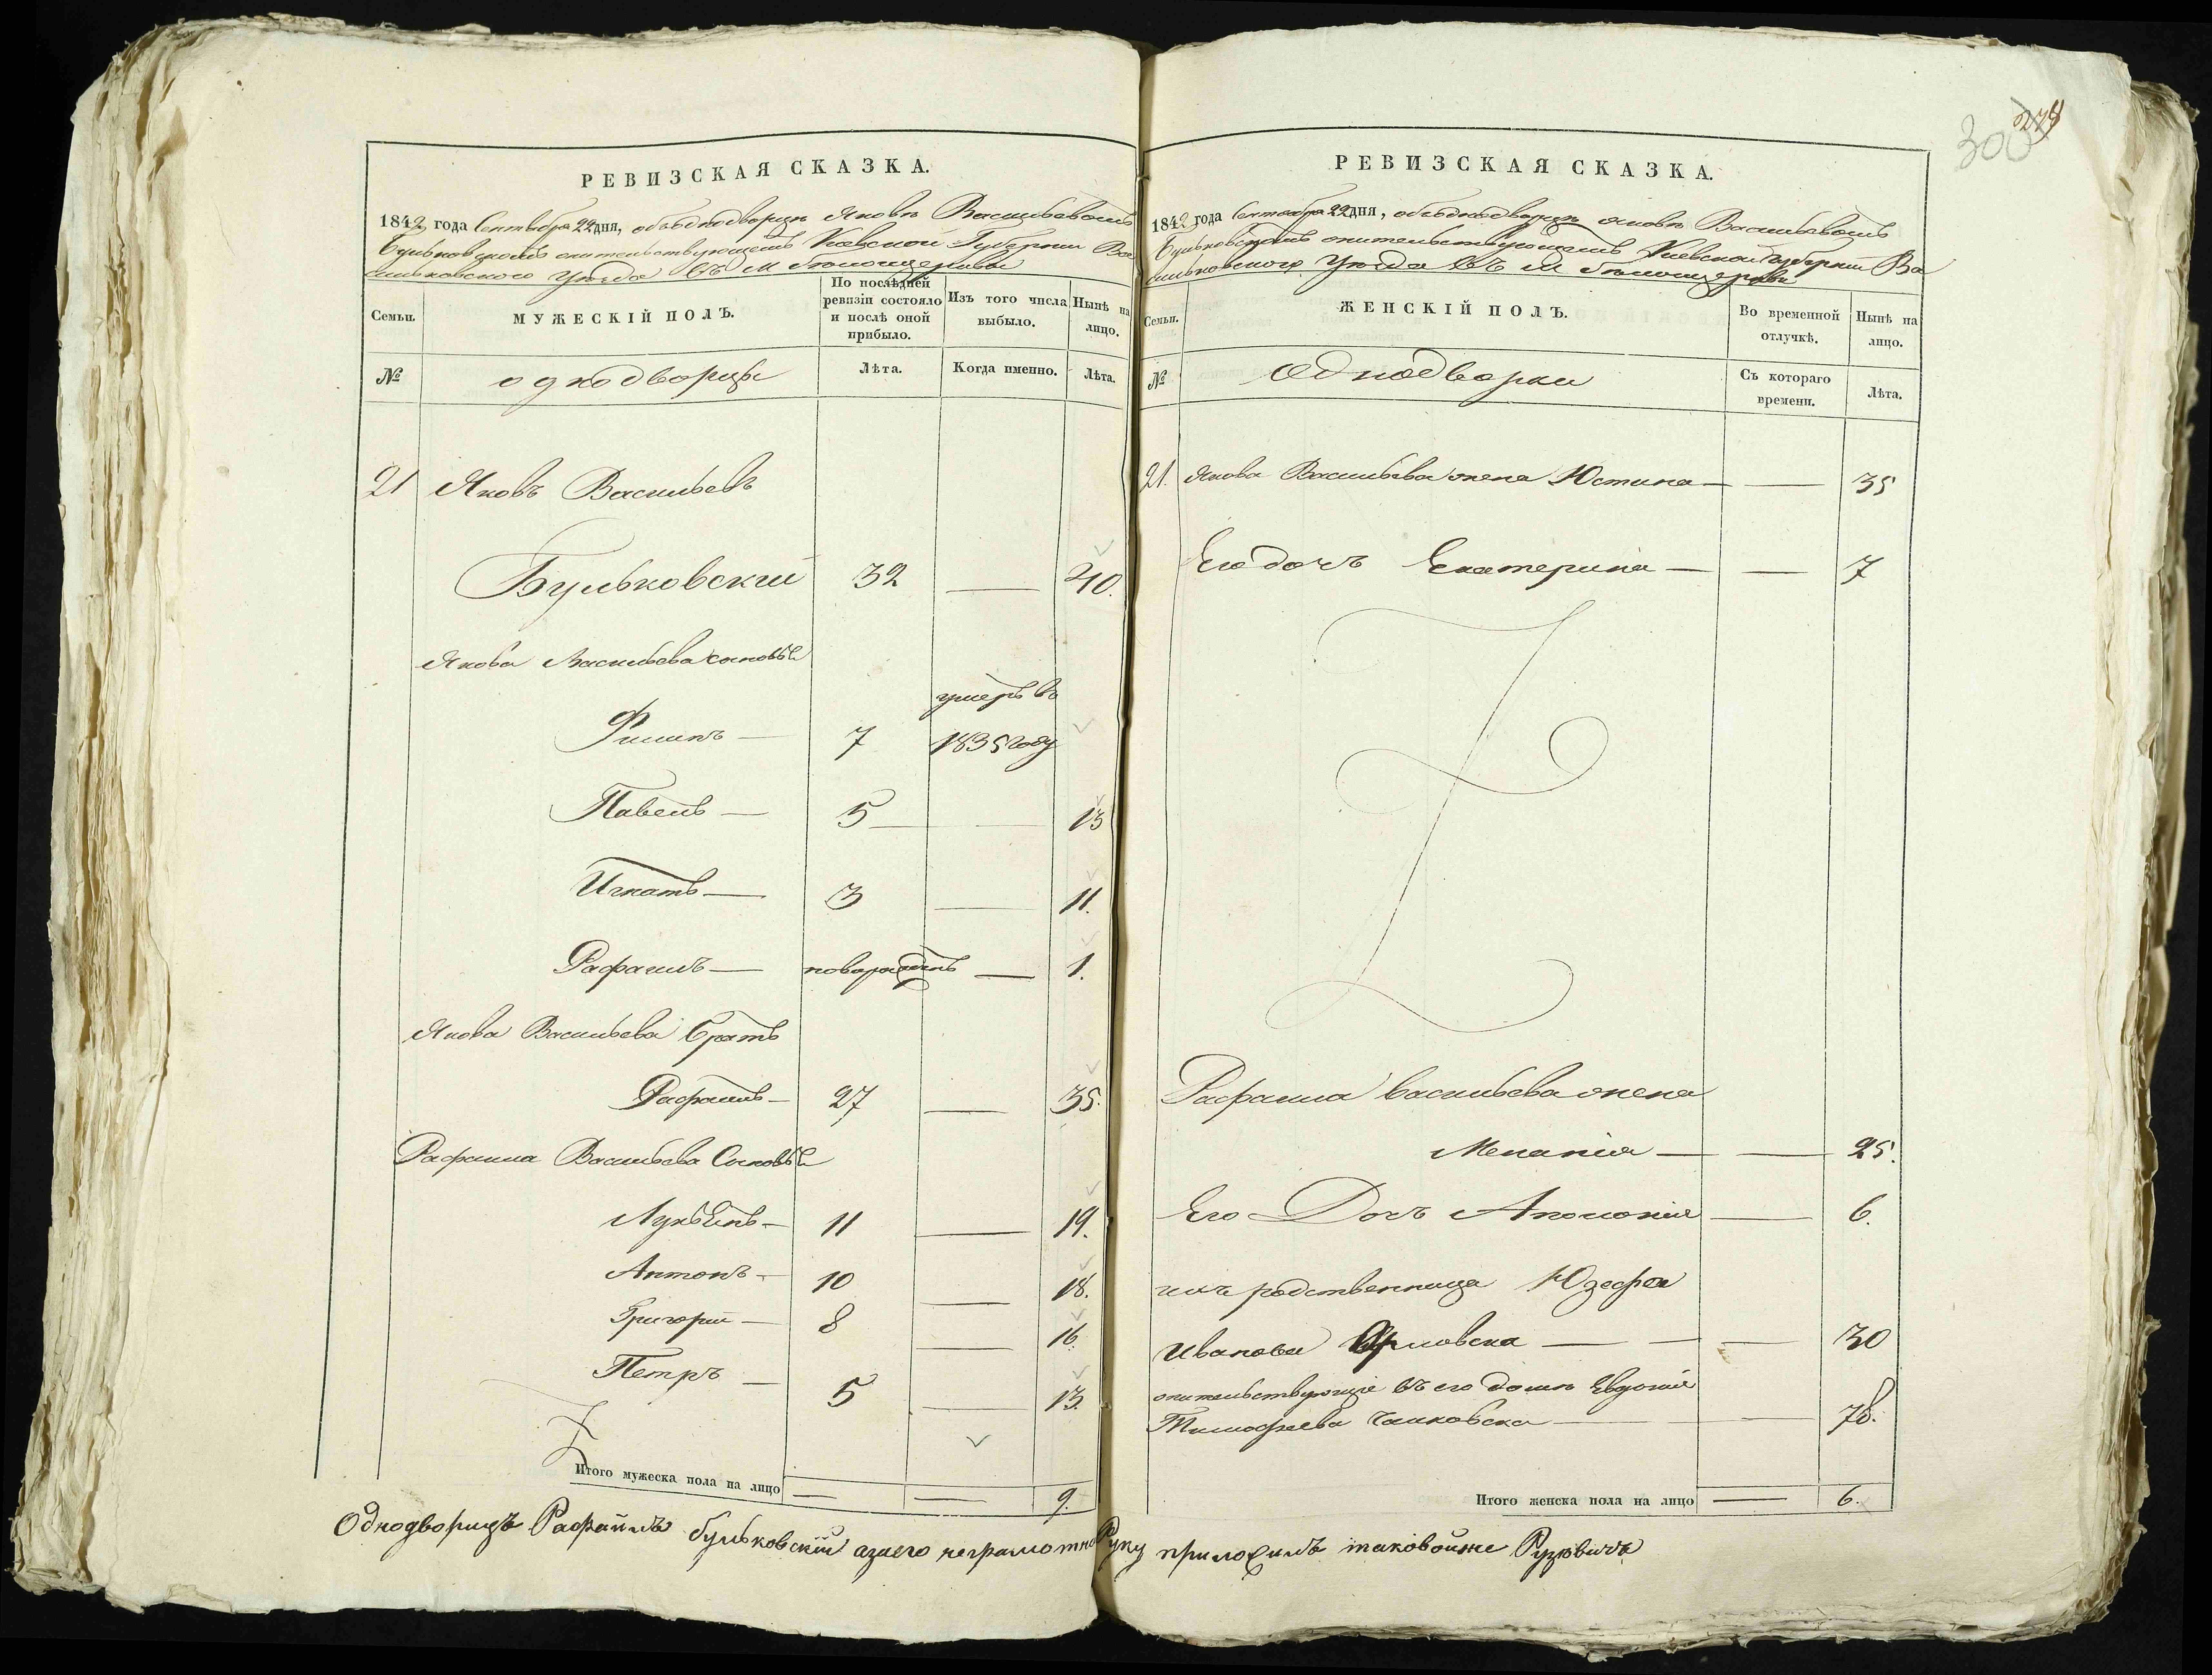 278
300
РЕВИЗСКАЯ СКАЗКА.
1842 года Сентября 22 дня, объ однодворцѣ Яковѣ Васильевомъ
Бульковскомъ жительствующемъ Кіевской Губерніи Ва
сильковскаго уѣзда въ м
Семьи.
МУЖЕСКІЙ ПОЛЪ.
По послѣдней ревизіи состояло и послѣ оной прибыло.
Изъ того числа выбыло.
Нынѣ на лицо.
№
однодворцы
Лѣта.
Когда именно.
Лѣта.
21 Яковъ Васильевъ
Бульковскій 32 — 40.
Якова Васильева сыновья
умеръ въ
Филипъ — 7 1835 году
Павелъ — 5 — 13
Игнатъ — 3 — 11.
Рафаилъ — новорожденъ — 1.
Якова Васильева братъ
Рафаилъ — 27 — 35.
Рафаила Васильева Сыновья
Лукьянъ — 11 — 19.
Антонъ — 10 — 18.
Григорій — 8 — 16.
Петръ — 5 — 13.
Итого мужеска пола на лицо — — 9.
РЕВИЗСКАЯ СКАЗКА.
1842 года Сентября 22 дня, объ однодворцѣ Яковѣ Васильевомъ
Бульковскомъ жительствующемъ Кіевской Губерніи Ва
сильковскаго уѣзда въ м
Семьи.
ЖЕНСКІЙ ПОЛЪ.
Во временной отлучкѣ.
Нынѣ на лицо.
№
Однодворки
Съ котораго времени.
Лѣта.
21. Якова Васильева жена Юстина — — 35
Его дочь Екатерина — — 7
Рафаила Васильева жена
Меланія — — 25.
Его Дочь Аполонія — 6.
ихъ родственница Юзефа
Иванова Орловска — — — 30
жительствующіе въ его домѣ Евдокія
Тимофеева — — 78.
Итого женска пола на лицо — 6.
Однодворецъ Рафаилъ Бульковскій а за его неграмотно Руку приложилъ таковойже